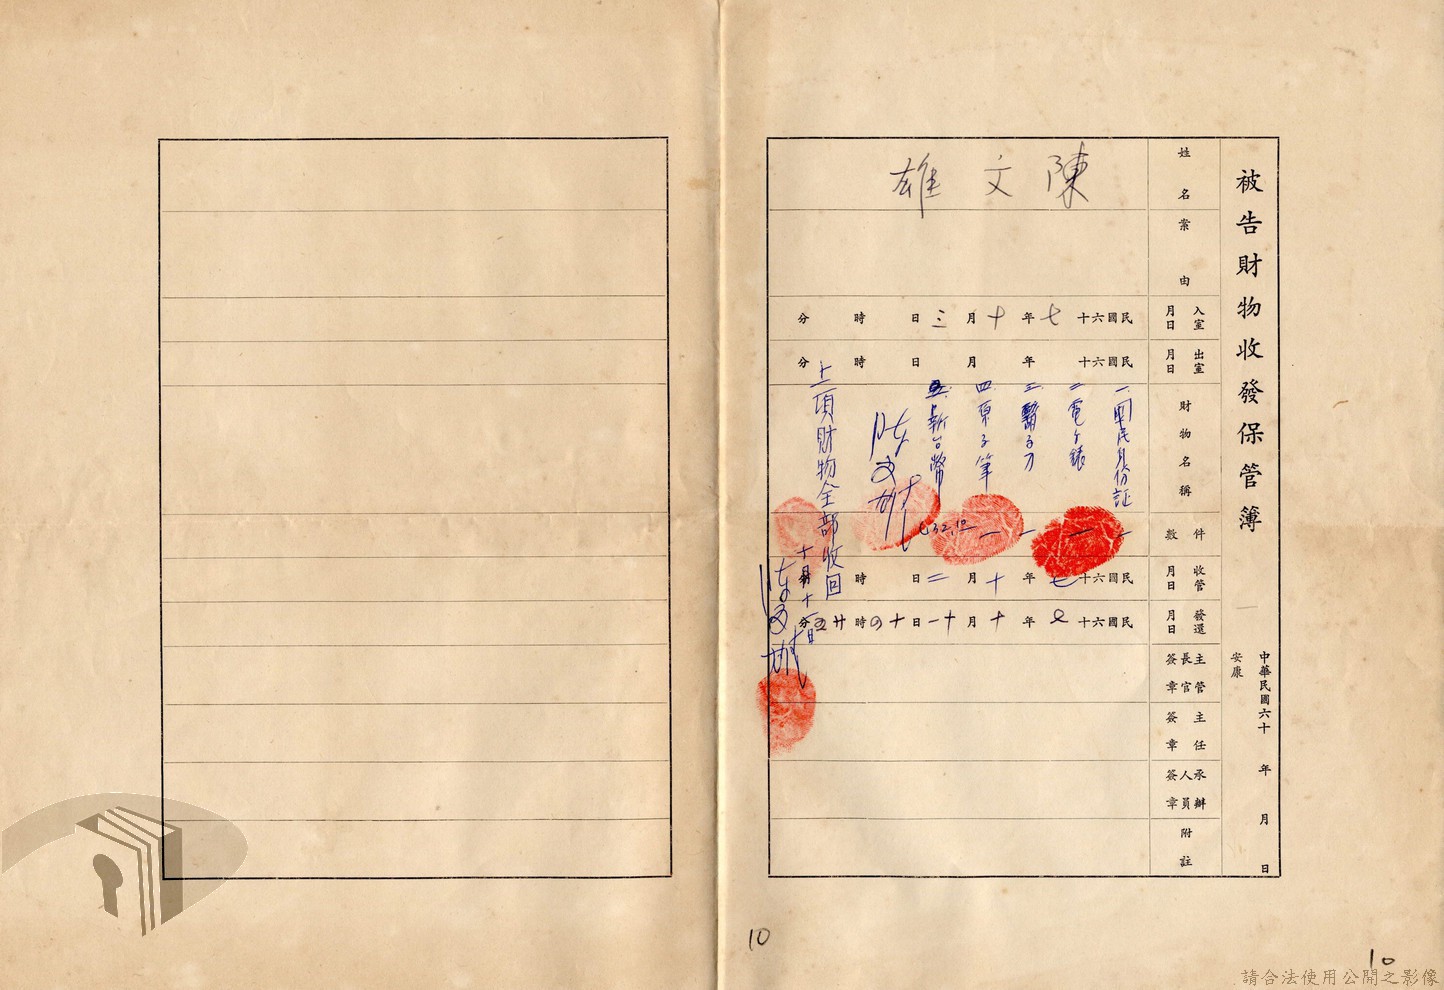 被告財物收發保管簿
中華民國六十 年 月 日
安康
姓名
陳文雄
案由
入室月日
民國六十七年十月三日 時 分
出室月日
民國六十 年 月 日 時 分
財物名稱
件數
一國民身份証 一
二電子錶 一
三鬍子刀 一
四原子筆 一
五新台幣 632.10
陳文雄
上項財物全部收回
十月十一日
陳文雄
收管月日
民國六十七年十月三日 時 分
發還月日
民國六十七年十月十一日十四時廿五分
主管長官簽章
主任簽章
承辦人員簽章
附註
10
10
請合法使用公開之影像